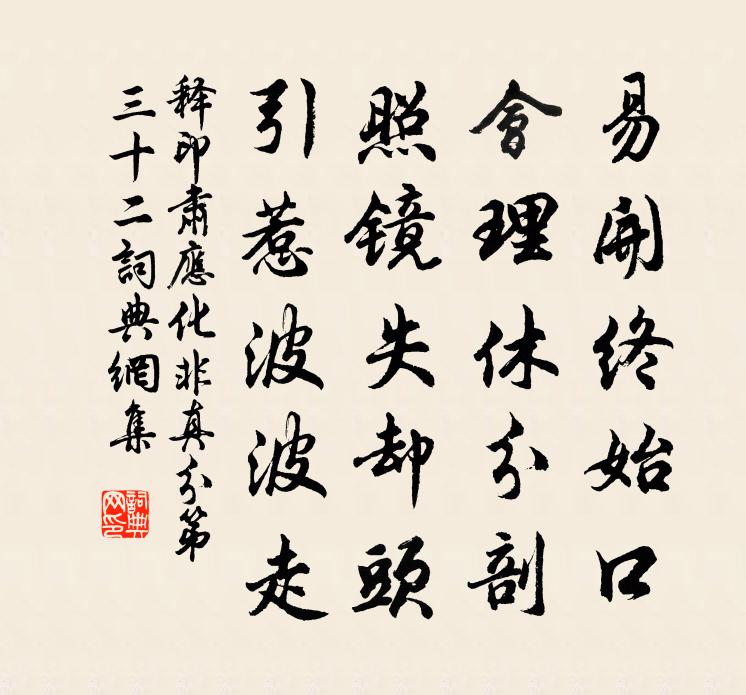 易開終始口
會理休分剖
照镜失却頭
引惹波波走
释印肅應化非真分第
三十二詞典網集
詞典
网印